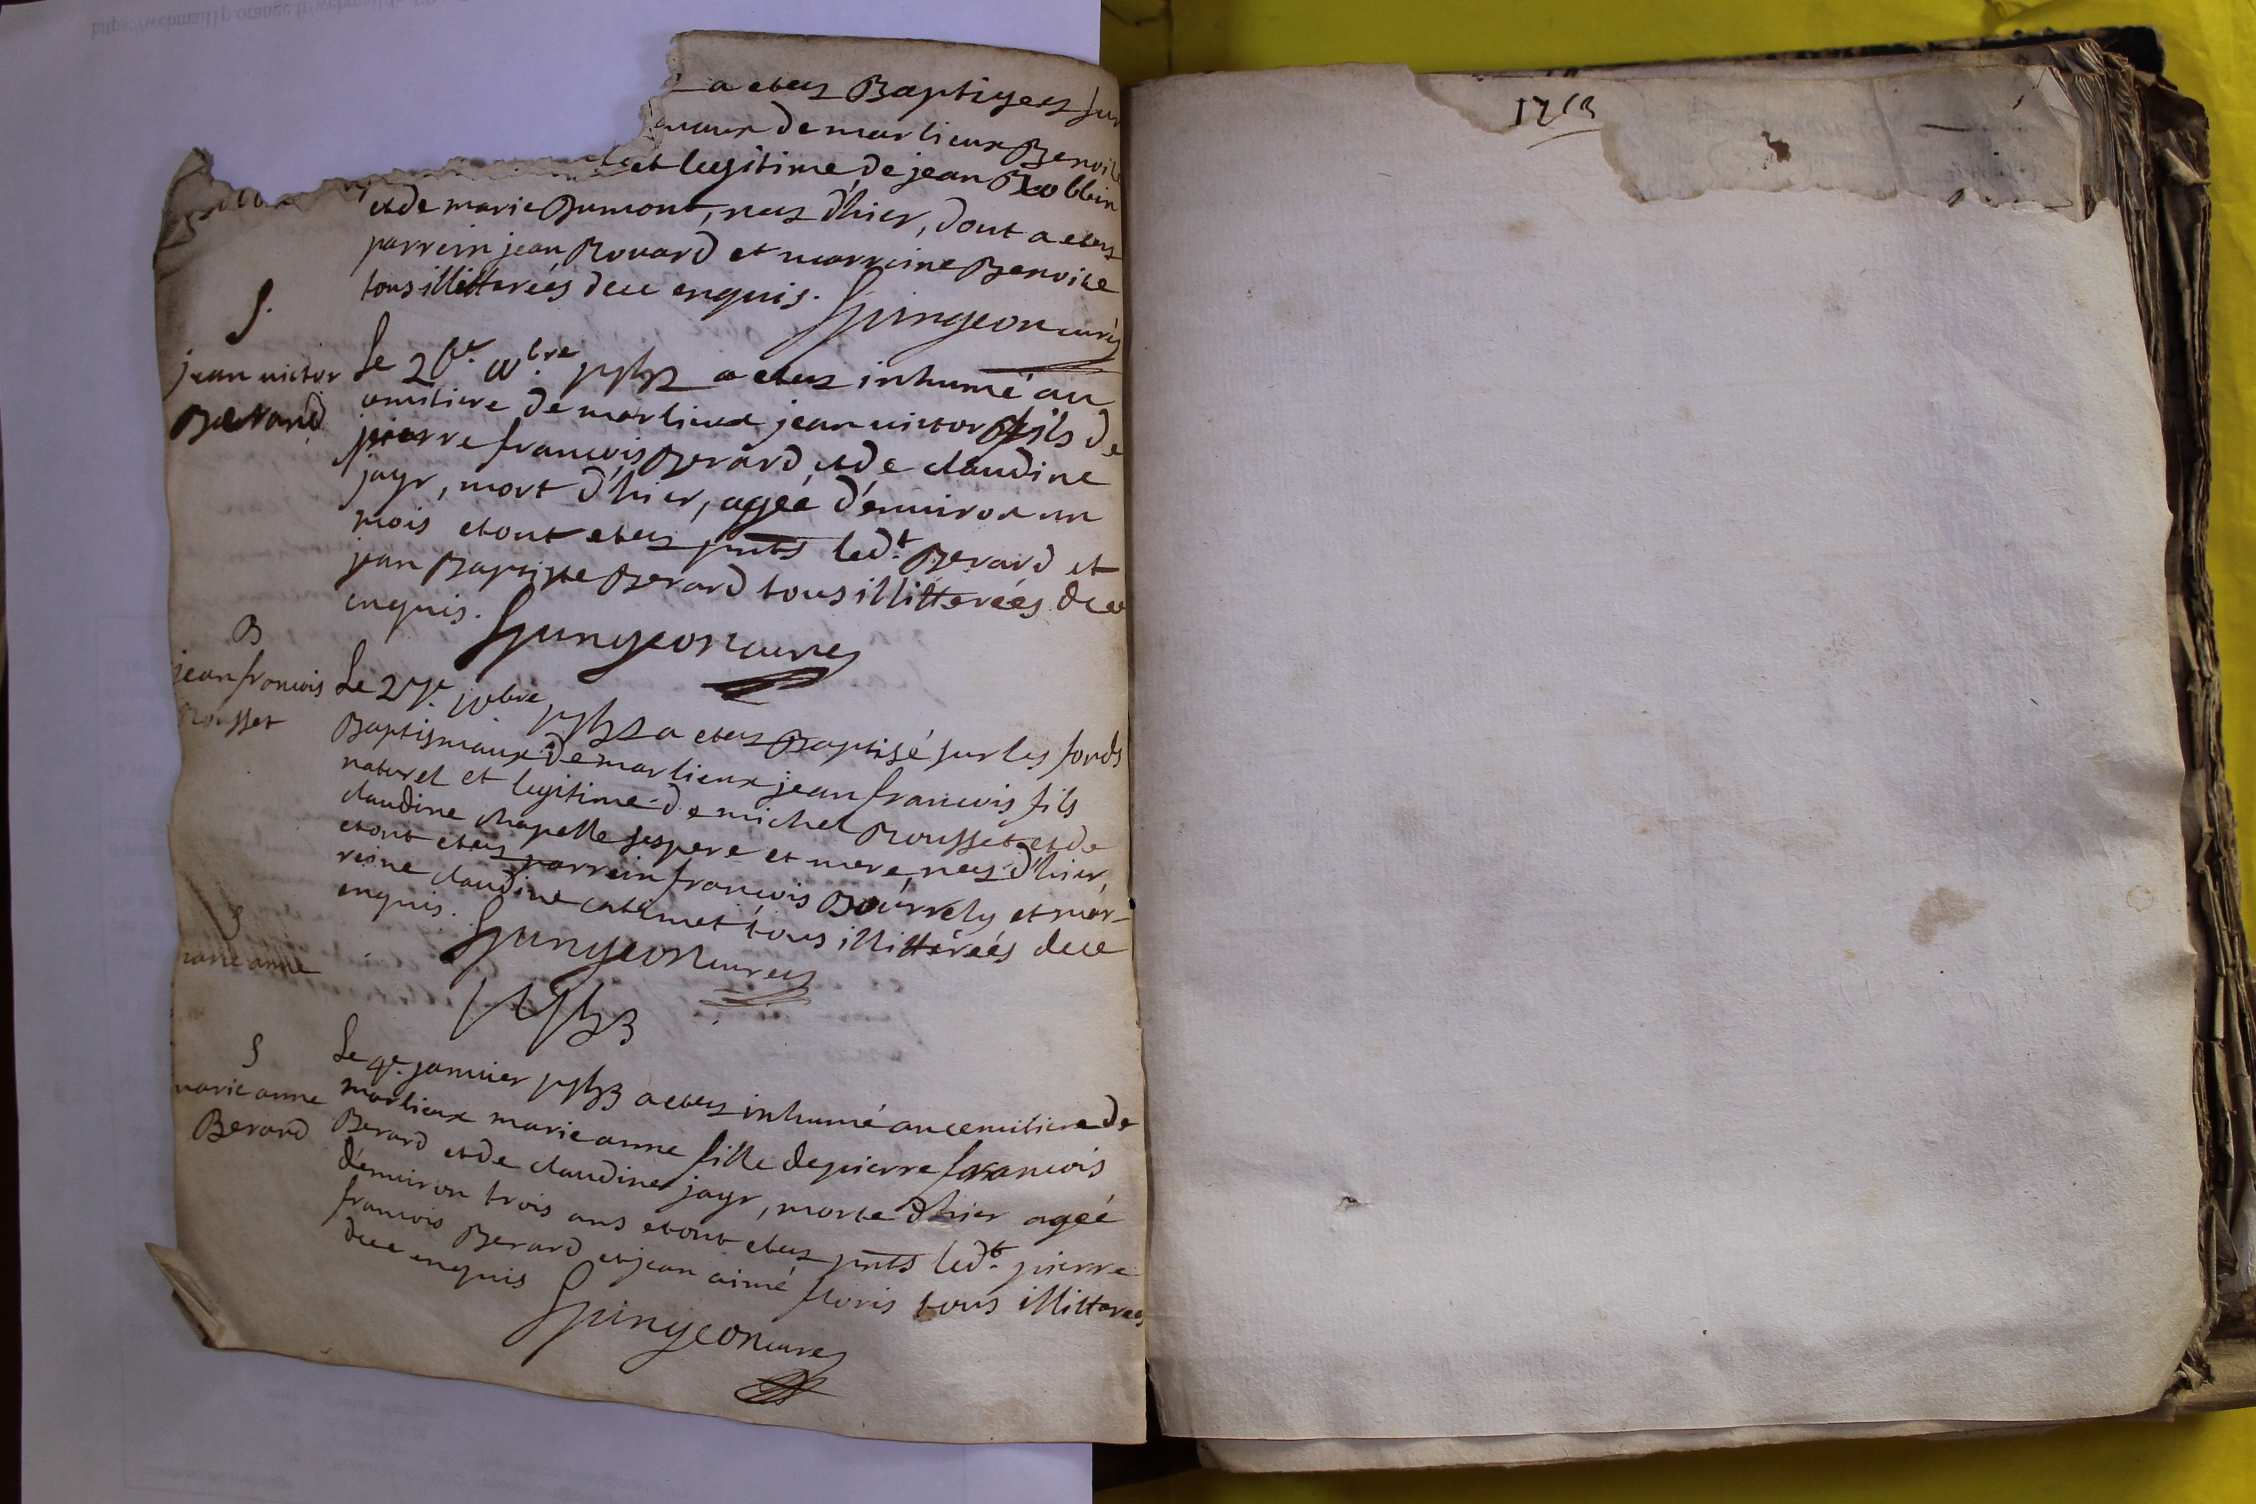 a etez Baptizez sur
de marlieux Benoite
et legitime de jean Robbin
et de marie Dumont, nez d'hier, dont a etez
parrein jean Rouard et marreine Benoite
tous illitterées dece enquis.
Spingeon curéz
S.
jean victor
Berard
Le 26e. xbre a etez inhumé au
cemitiere de marlieux jean victor fils de
pierre francois Berard et de claudine
jayr, mort d'hier, ageé d'environ un
mois et ont etez pnts led.t Berard et
jean Baptiste Berard tous illitterées dece
enquis.
Spingeon curez
B
jean francois
Rousset
Le 27e. a etez Baptisé sur les fonds
Baptismaux de marlieux jean francois fils
naturel et legitime de michel Rousset et de
claudine chapelle ses pere et mere, nez d'hier,
et ont etez parrein francois Bourrely et mar-
reine claudine catimet tous illitterées dece
enquis.
Spingeon curez
S
marie anne
S
marie anne
Berard
Le 4e. janvier a etez inhumé au cemitiere de
marlieux marie anne fille de pierre francois
Berard et de claudine jayr, morte d'hier ageé
d'environ trois ans et ont etez pnts led.t pierre
francois Berard et jean aimé floris tous illitterées
dece enquis
Spingeon curez
1763